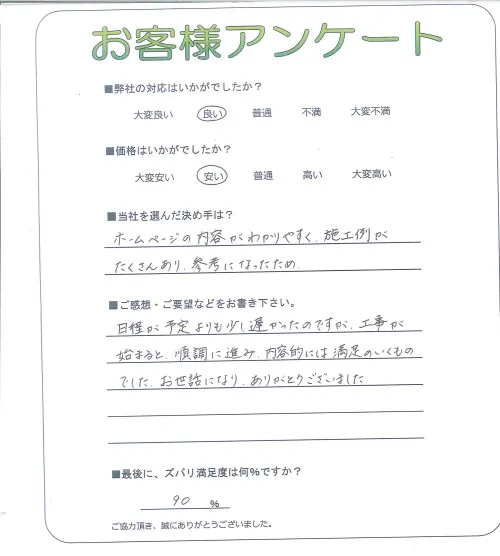 お客様アンケート
■弊社の対応はいかがでしたか?
大変良い 良い 普通 不満 大変不満
■価格はいかがでしたか?
大変安い 安い 普通 高い 大変高い
■当社を選んだ決め手は?
ホームページの内容がわかりやすく、施工例が
たくさんあり、参考になったため。
■ご感想・ご要望などをお書き下さい。
日程が予定よりも少し遅かったのですが、工事が
始まると、順調に進み、内容的には満足のいくもの
でした。お世話になり、ありがとうございました
■最後に、ズバリ満足度は何%ですか?
90 %
ご協力頂き、誠にありがとうございました。